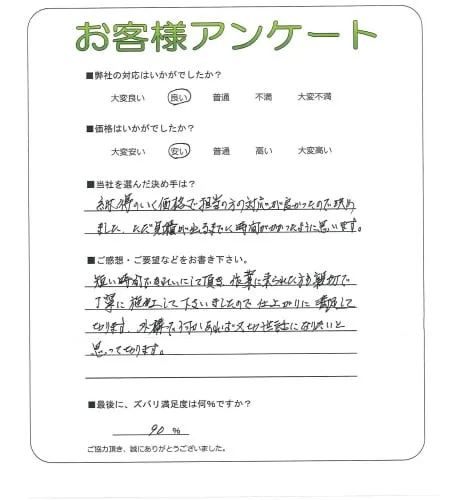 お客様アンケート
■弊社の対応はいかがでしたか?
大変良い 良い 普通 不満 大変不満
■価格はいかがでしたか?
大変安い 安い 普通 高い 大変高い
■当社を選んだ決め手は?
納得のいく価格で担当の方の対応が良かったので決め
ました。ただ見積が出るまでに時間がかかったように思います。
■ご感想・ご要望などをお書き下さい。
短い時間できれいにして頂き 作業に来られた方も親切で
丁寧に施工して下さいましたので仕上がりに満足して
おります。外構で何かあれば又お世話になりたいと
思っております。
■最後に、ズバリ満足度は何%ですか?
90 %
ご協力頂き、誠にありがとうございました。